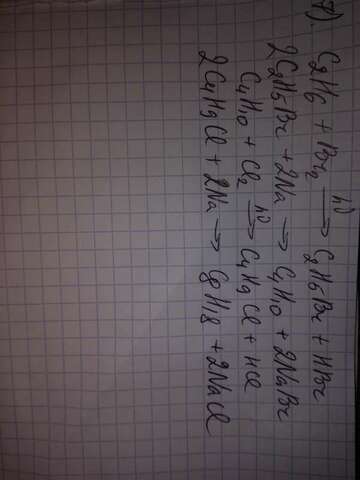 7).
C2H6 + Br2 hν→ C2H5Br + HBr
2C2H5Br + 2Na → C4H10 + 2NaBr
C4H10 + Cl2 hν→ C4H9Cl + HCl
2C4H9Cl + 2Na → C8H18 + 2NaCl